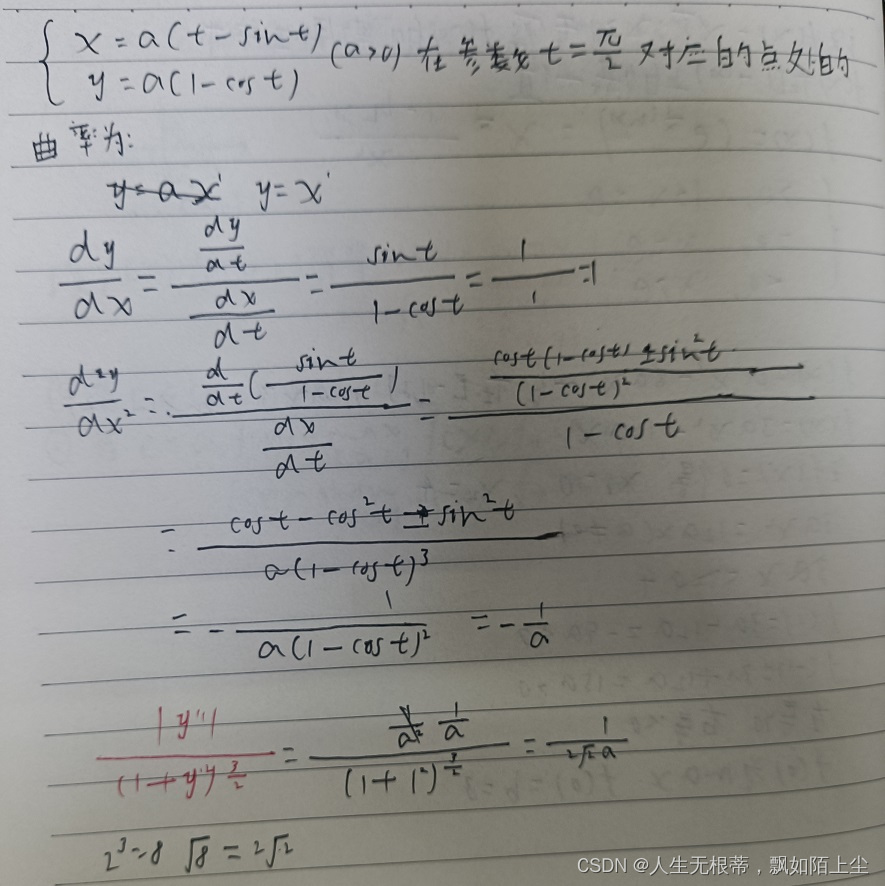 { x = a(t - sint)
y = a(1 - cost) (a>0) 在参数 t = π/2 对应的点处的
曲率为:
y = a x' y = x'
dy/dx = (dy/dt)/(dx/dt) = sint/(1-cost) = 1/1 = 1
d²y/dx² = (d/dt(sint/(1-cost)))/(dx/dt) = ((cost(1-cost) ± sin²t)/(1-cost)²)/(1-cost)
= (cost - cos²t ± sin²t)/(a(1-cost)³)
= - 1/(a(1-cost)²) = - 1/a
|y''|/(1+y')^(3/2) = (1/a)/(1+1²)^(3/2) = 1/(2√2 a)
2³=8 √8 = 2√2
CSDN @人生无根蒂，飘如陌上尘